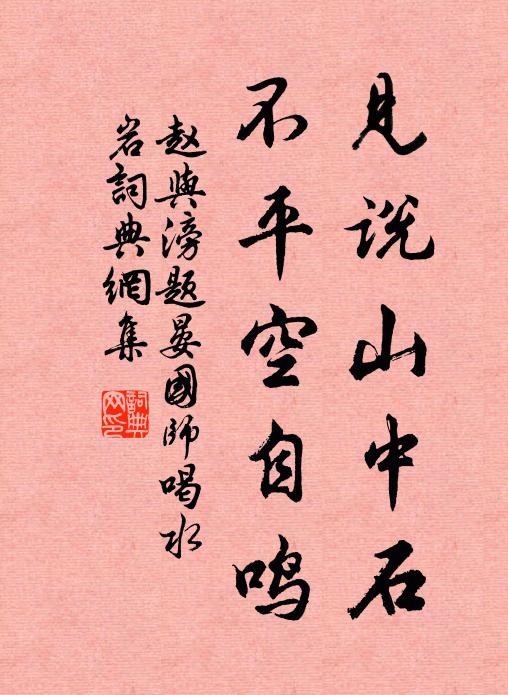 见说山中石
不平空自鸣
赵與滂题晏國師喝水
岩詞典網集
詞典网印